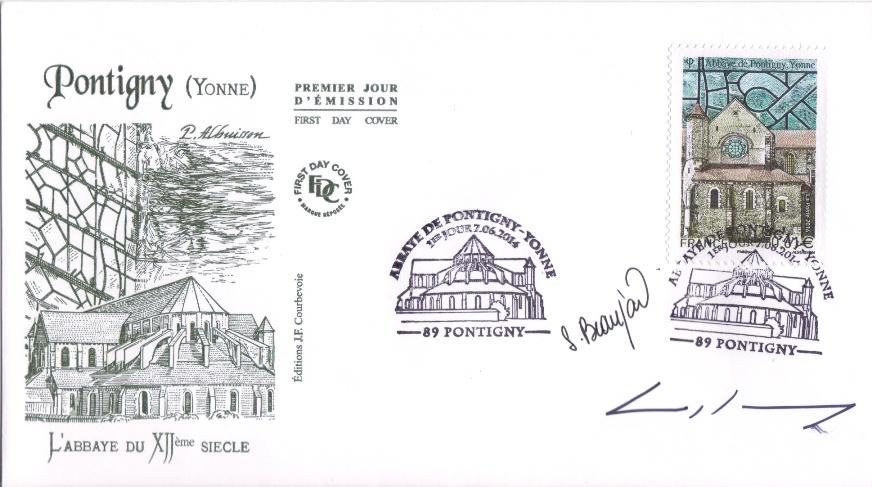 Pontigny (YONNE)
P. Albuisson
PREMIER JOUR
D'ÉMISSION
FIRST DAY COVER
FIRST DAY COVER
FDC
MARQUE DÉPOSÉE
Éditions J.F. Courbevoie
L'ABBAYE DU XIIème SIECLE
ABBAYE DE PONTIGNY-YONNE
1ER JOUR 7.06.2014
89 PONTIGNY
S. Beaujard
Abbaye de Pontigny, Yonne
FRANCE
ABBAYE DE PONTIGNY-YONNE
1ER JOUR 7.06.2014
89 PONTIGNY